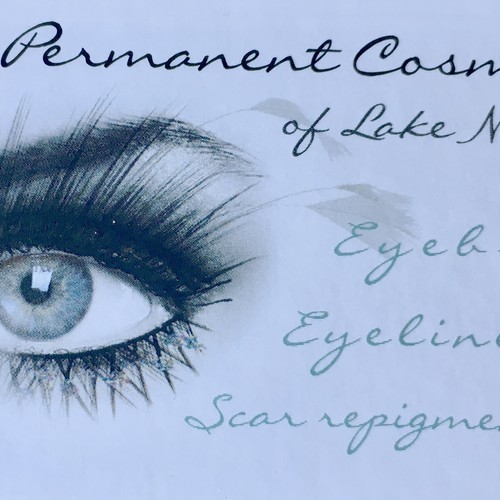 Permanent Cosm
of Lake N
Eyeb
Eyeline
Scar repigme